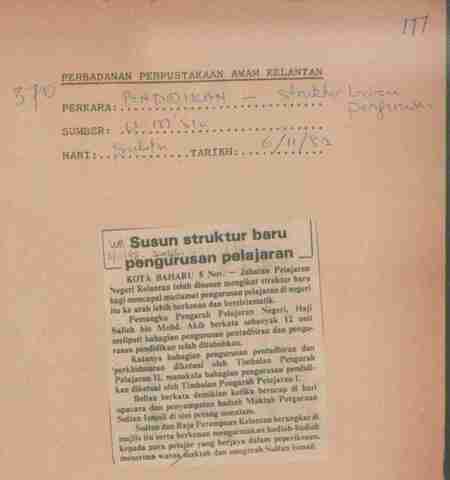 177
PERBADANAN PERPUSTAKAAN AWAM KELANTAN
370
PERKARA: PENDIDIKAN - struktur baru
pengurusan
SUMBER: U. M'sia
HARI: Sabtu TARIKH: 6/11/82
Susun struktur baru
pengurusan pelajaran
KOTA BAHARU 5 Nov. — Jabatan Pelajaran
Negeri Kelantan telah disusun mengikut struktur baru
bagi mencapai matlamat pengurusan pelajaran di negeri
itu ke arah lebih berkesan dan bersistematik.
Pemangku Pengarah Pelajaran Negeri, Haji
Salleh bin Mohd. Akib berkata sebanyak 12 unit
meliputi bahagian pengurusan pentadbiran dan pengu-
rusan pendidikan telah ditubuhkan.
Katanya bahagian pengurusan pentadbiran dan
perkhidmatan diketuai oleh Timbalan Pengarah
Pelajaran II, manakala bahagian pengurusan pendidi-
kan diketuai oleh Timbalan Pengarah Pelajaran I.
Beliau berkata demikian ketika berucap di hari
upacara dan penyampaian hadiah Maktab Perguruan
Sultan Ismail di sini petang semalam.
Sultan dan Raja Perempuan Kelantan berangkat di
majlis itu serta berkenan mengurniakan hadiah-hadiah
kepada para pelajar yang berjaya dalam peperiksaan,
menerima watas diektah dan anugerah Sultan Ismail.